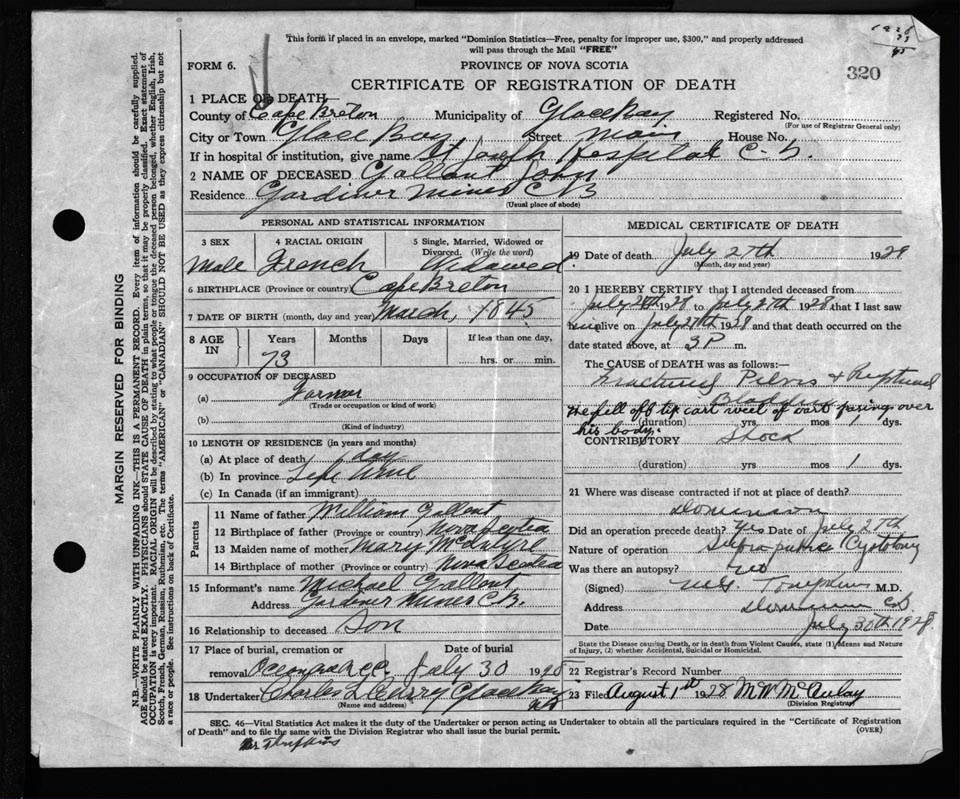 1928
This form if placed in an envelope, marked "Dominion Statistics—Free, penalty for improper use, $300," and properly addressed
will pass through the Mail "FREE"
FORM 6.
PROVINCE OF NOVA SCOTIA
320
CERTIFICATE OF REGISTRATION OF DEATH
1 PLACE OF DEATH—
County of Cape Breton Municipality of Glace Bay Registered No.
(For use of Registrar General only)
City or Town Glace Bay, Street Main House No.
If in hospital or institution, give name St Joseph Hospital C-B.
2 NAME OF DECEASED Gallant John
Residence Gardiner Mines CB
(Usual place of abode)
PERSONAL AND STATISTICAL INFORMATION
3 SEX 4 RACIAL ORIGIN 5 Single, Married, Widowed or Divorced. (Write the word)
Male French Widowed
6 BIRTHPLACE (Province or country) Cape Breton
7 DATE OF BIRTH (month, day and year) March, 1845
8 AGE IN Years Months Days If less than one day,
73 hrs. or min.
9 OCCUPATION OF DECEASED
(a) Farmer
(Trade or occupation or kind of work)
(b)
(Kind of industry)
10 LENGTH OF RESIDENCE (in years and months)
(a) At place of death day
(b) In province Life time
(c) In Canada (if an immigrant)
Parents
11 Name of father William Gallent
12 Birthplace of father (Province or country) Nova Scotea
13 Maiden name of mother Mary McIntyre
14 Birthplace of mother (Province or country) Nova Scotea
15 Informant's name Michael Gallent
Address Gardner Mines C.B.
16 Relationship to deceased Son
17 Place of burial, cremation or removal Date of burial
July 30 1928
18 Undertaker Charles Glace Bay
(Name and address) NS
MEDICAL CERTIFICATE OF DEATH
19 Date of death July 27th 1928
(Month, day and year)
20 I HEREBY CERTIFY that I attended deceased from
July 1928 to July 27th 1928 that I last saw
him alive on July 27th 1928 and that death occurred on the
date stated above, at 3 P m.
The CAUSE OF DEATH was as follows:—
Fractured Pelvis + Ruptured
Bladder
He fell off tip cart weel of cart passing over
(duration) yrs mos 1 dys.
his body.
CONTRIBUTORY Shock
(duration) yrs mos 1 dys.
21 Where was disease contracted if not at place of death?
Dominion
Did an operation precede death? Yes Date of July 27th
Nature of operation Supra pubic Cystotomy
Was there an autopsy? No
(Signed) M.G. Tompkins M.D.
Address Dominion CB.
Date July 30th 1928
State the Disease causing Death, or in death from Violent Causes, state (1) Means and Nature of Injury, (2) whether Accidental, Suicidal or Homicidal.
22 Registrar's Record Number
23 Filed August 1st 1928 M W McAulay
(Division Registrar)
SEC. 46—Vital Statistics Act makes it the duty of the Undertaker or person acting as Undertaker to obtain all the particulars required in the "Certificate of Registration
of Death" and to file the same with the Division Registrar who shall issue the burial permit.
(OVER)
MARGIN RESERVED FOR BINDING
N.B.—WRITE PLAINLY WITH UNFADING INK—THIS IS A PERMANENT RECORD. Every item of information should be carefully supplied.
AGE should be stated EXACTLY. PHYSICIANS should STATE CAUSE OF DEATH in plain terms, so that it may be properly classified. Exact statement of
OCCUPATION is very important. RACIAL ORIGIN will be described by stating to what people or tongue the deceased person belonged, whether English, Irish,
Scotch, French, German, Russian, Ruthenian, etc. The terms "AMERICAN" or "CANADIAN" SHOULD NOT BE USED as they express citizenship but not
a race or people. See instructions on back of Certificate.